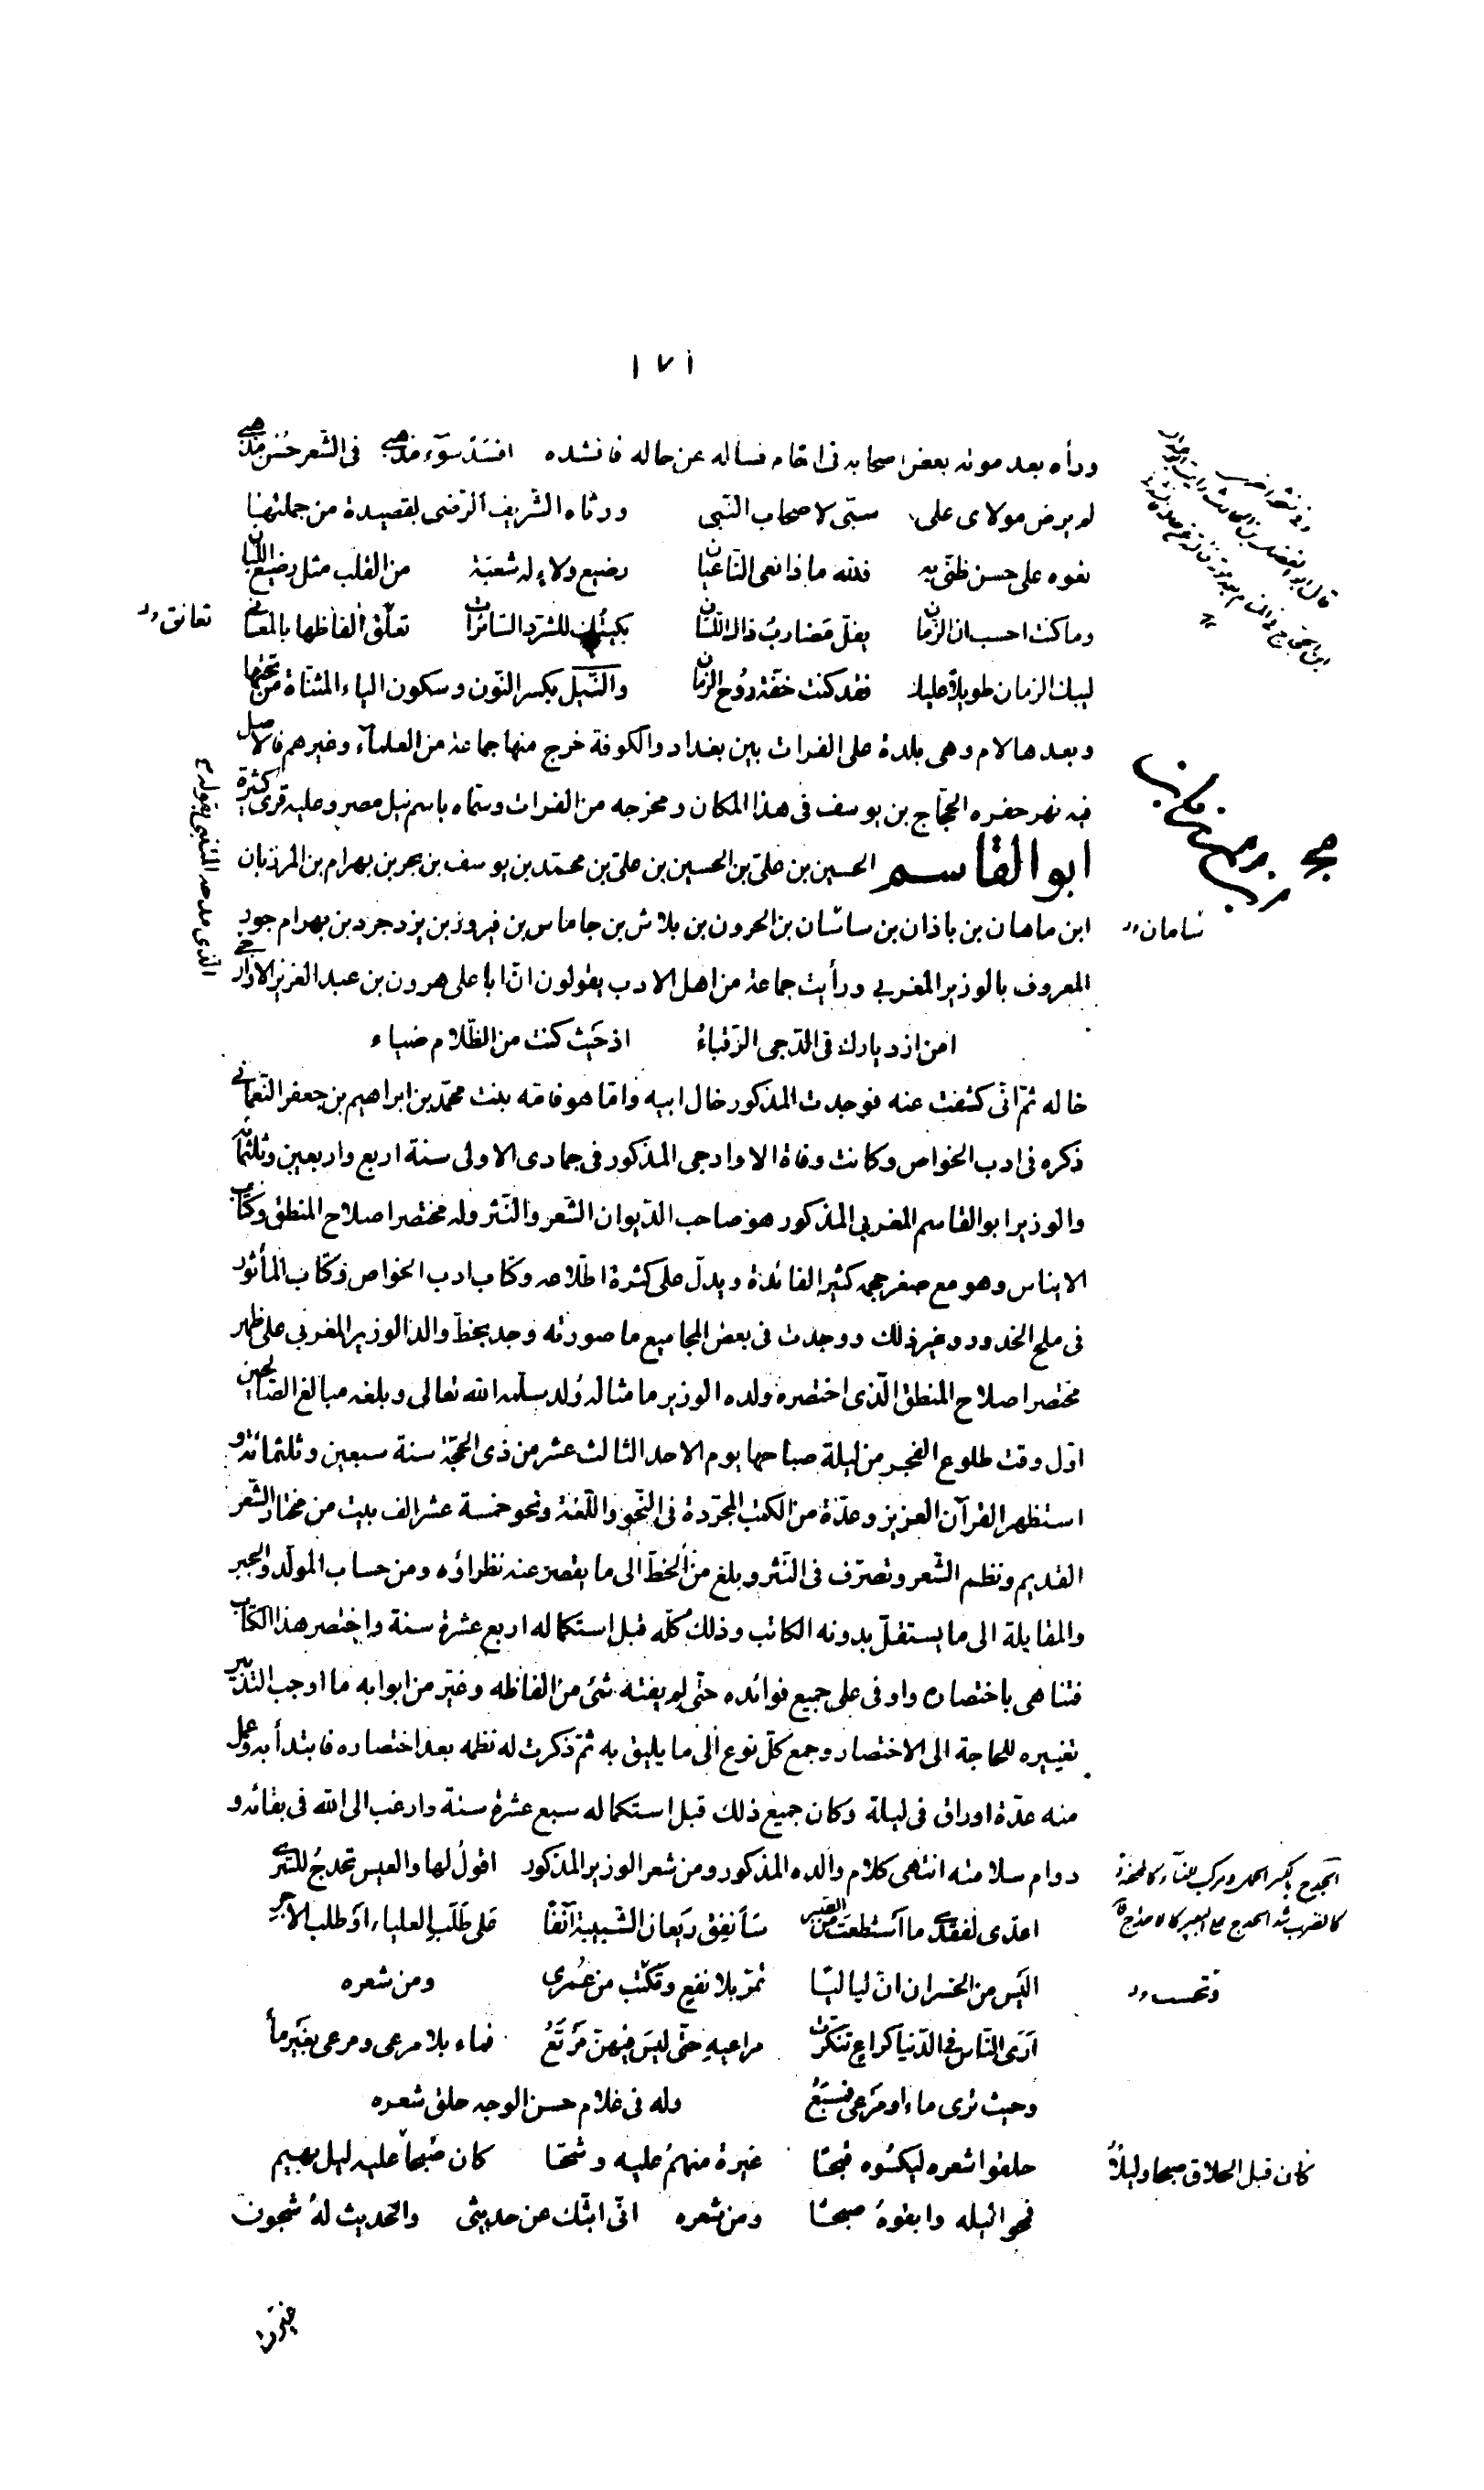 ١٧١
ورأه بعد موته بعض اصحابه فى المنام فساله عن حاله فانشده افسد سوٓء مذهبى فى الشّعر حُسن مذهبى
لم يرض مولاى على سبّى لاصحاب النّبى ورثاه الشّريف الرّضى بقصيدة من جملتها
نعوه على حسن ظنّى به فلله ماذا نعى النّاعيان رضيع ولاءٍ له شعبة من القلب مثل رضيع اللبان
وما كنت احسب ان الزّمان يفلّ مضارب ذاك اللّسان بكيتُك للشرّد السّائرات تعلّق الفاظها بالمعانى
تعانق
ليبك الزمان طويلاً عليك فقد كنت خفّة روُح الزمان والنّيل بكسر النّون وسكون الياء المثنّاة من تحتها
وبعدها لام وهى بلدة على الفرات بين بغداد والكوفة خرج منها جماعة من العلمآء وغيرهم والاصل
فيه نهر حفره الحجّاج بن يوسف فى هذا المكان ومخرجه من الفرات وسمّاه باسم نيل مصر وعليه قرى كثيرة
ابو القاسم الحسين بن علىّ بن الحسين بن علىّ بن محمّد بن يوسف بن بحر بن بهرام بن المرزبان
ابن ماهان بن باذان بن ساسّان بن الحرون بن بلاش بن جاماس بن فيروز بن يزدجرد بن بهرام جور
المعروف بالوزير المغربي ورأيت جماعة من اهل الادب يقولون انّ ابا على هرون بن عبد العزيز الاوارجى
الّذى مدحه المتنبى بقوله
امن ازديارك فى الدّجى الرّقباءُ اذ حَيث كنت من الظّلام ضياء
خاله ثمّ انّى كشفت عنه فوجدت المذكور خال ابيه وامّا هو فامّه بنت محمّد بن ابراهيم بن جعفر النّعمانى
ذكره فى ادب الخواص وكانت وفاة الاوارجى المذكور فى جمادى الاولى سنة اربع واربعين وثلثمائة
والوزير ابو القاسم المغربى المذكور هو صاحب الدّيوان الشّعر والنّثر وله مختصر اصلاح المنطق وكتاب
الايناس وهو مع صغر حجمه كثير الفائدة ويدلّ على كثرة اطّلاعه وكتاب ادب الخواص وكتاب المأثور
فى ملح الخدور وغير ذلك ووجدت فى بعض المجاميع ما صورته وجد بخطّ والد الوزير المغربى على ظهر
مختصر اصلاح المنطق الّذى اختصره ولده الوزير ما مثاله وُلد سلّمه الله تعالى وبلغه مبالغ الصّالحين
اوّل وقت طلوع الفجر من ليلة صباحها يوم الاحد الثالث عشر من ذى الحجّة سنة سبعين وثلثمائة و
استظهر القرآن العزيز وعدّة من الكتب المجرّدة فى النّحو واللّغة ونحو خمسة عشر الف بيت من مختار الشّعر
القديم ونظم الشّعر وتصرّف فى النّثر وبلغ من الخطّ الى ما يقصر عنه نظراؤه ومن حساب المولّد والجبر
والمقابلة الى ما يستقلّ بدونه الكاتب وذلك كلّه قبل استكماله اربع عشرة سنة واختصر هذا الكتاب
فتناهى باختصاره واوفى على جميع فوائده حتّى لم يفته شئ من الفاظه وغيّر من ابوابه ما اوجب التّدبير
تغييره للحاجة الى الاختصار وجمع كلّ نوع الى ما يليق به ثمّ ذكرت له نظمه بعد اختصاره فابتدأ به وعمل
منه عدّة اوراق فى ليلة وكان جميع ذلك قبل استكماله سبع عشرة سنة وارغب الى الله فى بقائه و
دوام سلامته انتهى كلام والده المذكور ومن شعر الوزير المذكور اقولُ لها والعيس تحدجُ للسّرى
اعدّى لفقدى ما استطعت من الصّبر سَأنفِق رَيعان الشّبيبة آنفًا على طَلَب العلياء او طلب الاجر
اليَس من الخسران ان لياليًا تمرّ بلا نفعٍ وتكتب من عُمرى ومن شعره
وتحسب
اَرَى النّاس فى الدّنيا كراعٍ تنكّرت مراعيهِ حتّى ليسَ فيهنّ مَرتَعُ فماء بلا مرعى ومرعى بغَير مأ
وحيث ترى ماء او مَرعى فَسَبَعُ وله فى غلام حسن الوجه حلق شعره
حلقوا شعره ليكسُوه قبحًا غيرة منهمُ عليه وشحّا كان صُبحاً عليه ليل بهيم
كان قبل الحلاق صبحا وليلاً
فمحوا ليله وابقوهُ صبحًا ومن شعره انّى ابثّك عن حديثى والحديث لهُ شجون